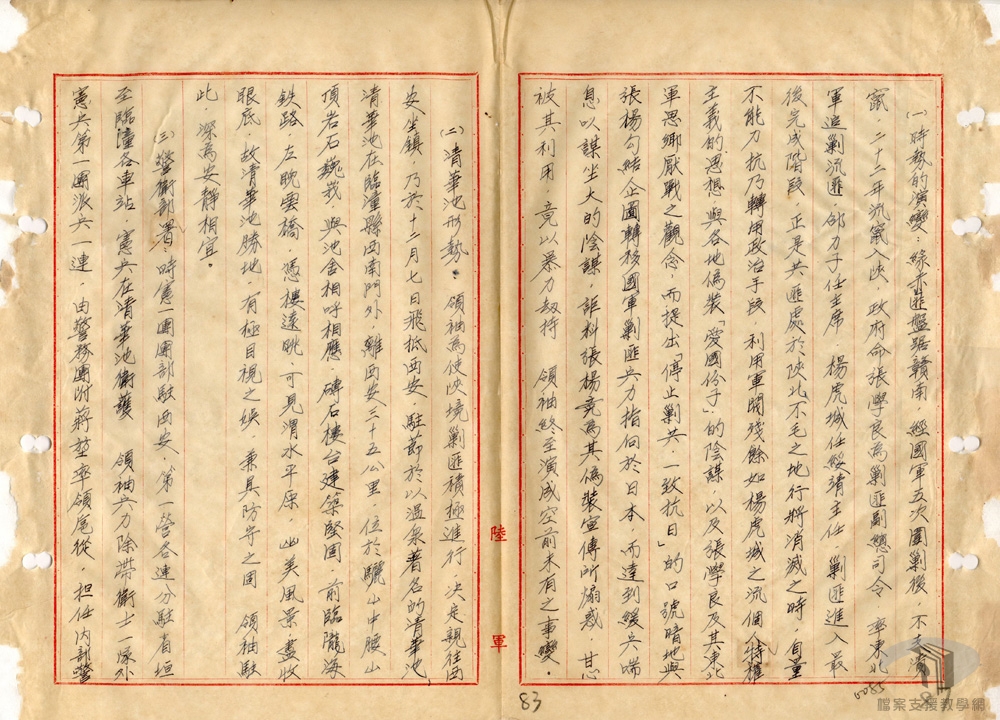 (一)時勢的演變:緣赤匪盤踞贛南,經國軍五次圍剿後,不支潰
竄,二十三年流竄入陝,政府命張學良為剿匪副總司令,率東北
軍追剿流匪,邵力子任主席,楊虎城任綏靖主任,剿匪進入最
後完成階段,正是共匪處於陝北不毛之地行將消滅之時,自量
不能力抗乃轉用政治手段,利用軍閥殘餘如楊虎城之流個人特權
主義的思想,與各地偽裝「愛國份子」的陰謀,以及張學良及其東北
軍思鄉厭戰之觀念,而提出「停止剿共,一致抗日」的口號暗地與
張楊勾結,企圖轉移國軍剿匪兵力指向於日本,而達到緩兵喘
息以謀坐大的陰謀,詎料張楊竟為其偽裝宣傳所煽惑,甘心
被其利用,竟以暴力劫持 領袖終至演成空前未有之事變。
(二)清華池形勢。領袖為使陝境剿匪積極進行,決定親往西
安坐鎮,乃於十二月七日飛抵西安,駐節於以溫泉著名的清華池
清華池在臨潼縣西南門外,離西安三十五公里,位於驪山中腰,山
頂岩石巍峩,與池舍相呼相應,磚石樓台建築堅固,前臨隴海
鐵路,左眈雲橋,憑樓遠眺,可見渭水平原,幽美風景,盡收
眼底,故清華池勝地,有極目視之娛,兼具防守之固,領袖駐
此,深為安靜相宜。
(三)警衛部署:時憲一團團部駐西安,第一營各連分駐省垣
至臨潼各車站,憲兵在清華池衛護 領袖兵力除滯衛士一隊外
憲兵第一團派兵一連,由警務團附蔣堃率領扈從,担任內部警
陸
軍
83
0085
檔案支援教學網